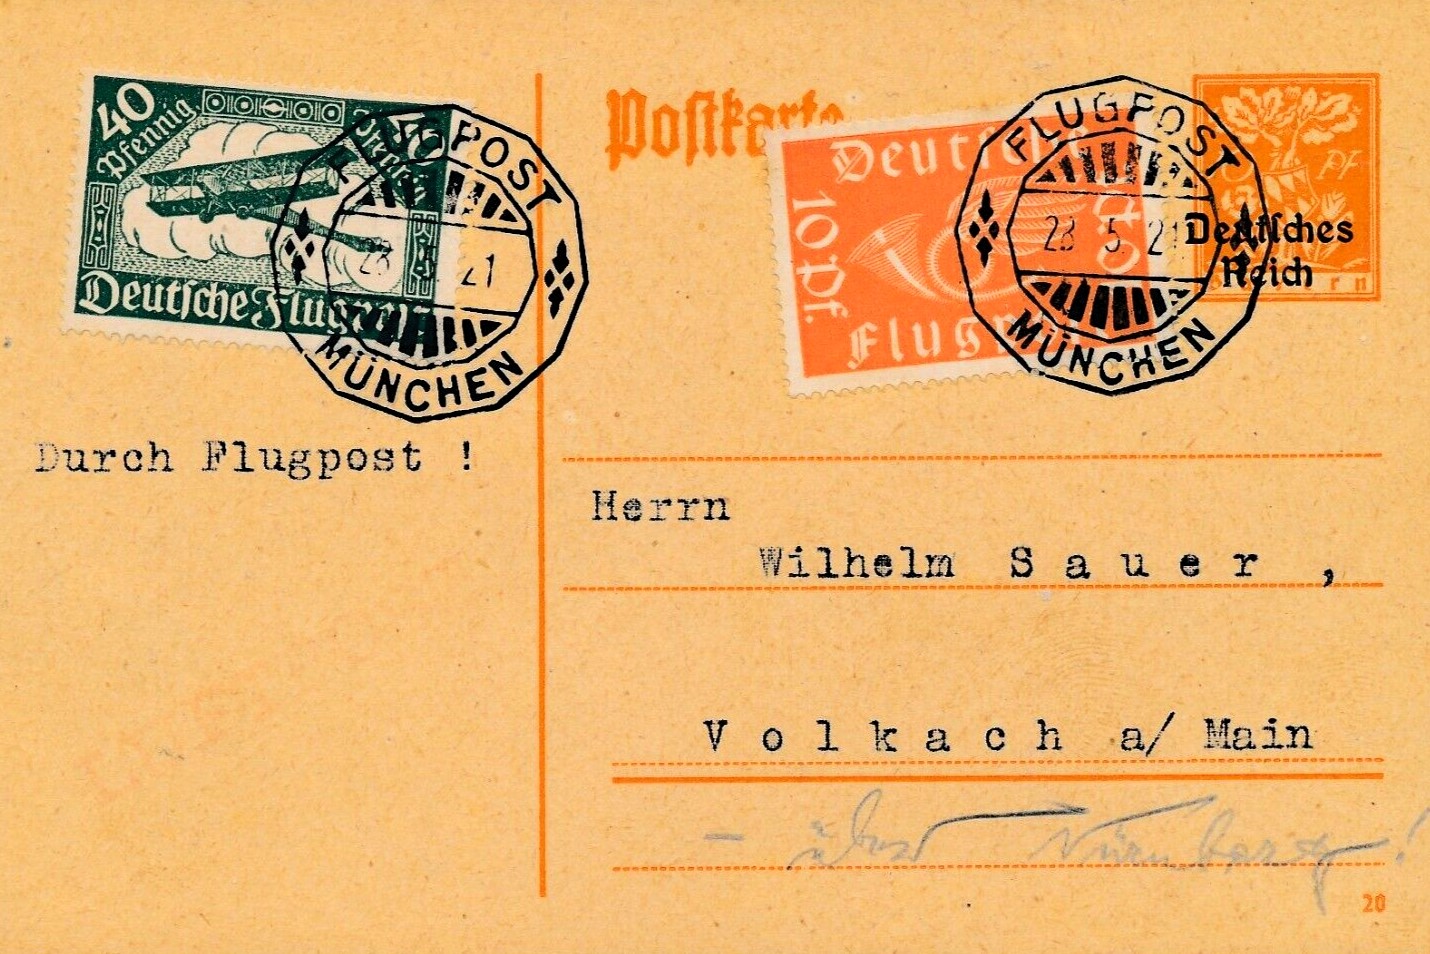 40
Pfennig
40
Pfennig
Deutsche Flugpost
FLUGPOST
21
MÜNCHEN
Postkarte
Deutsche
10 Pf.
Flugpost
FLUGPOST
23 5 21
MÜNCHEN
Pf
Deutsches
Reich
Durch Flugpost !
Herrn
Wilhelm Sauer ,
Volkach a/ Main
– über Nürnberg !
20